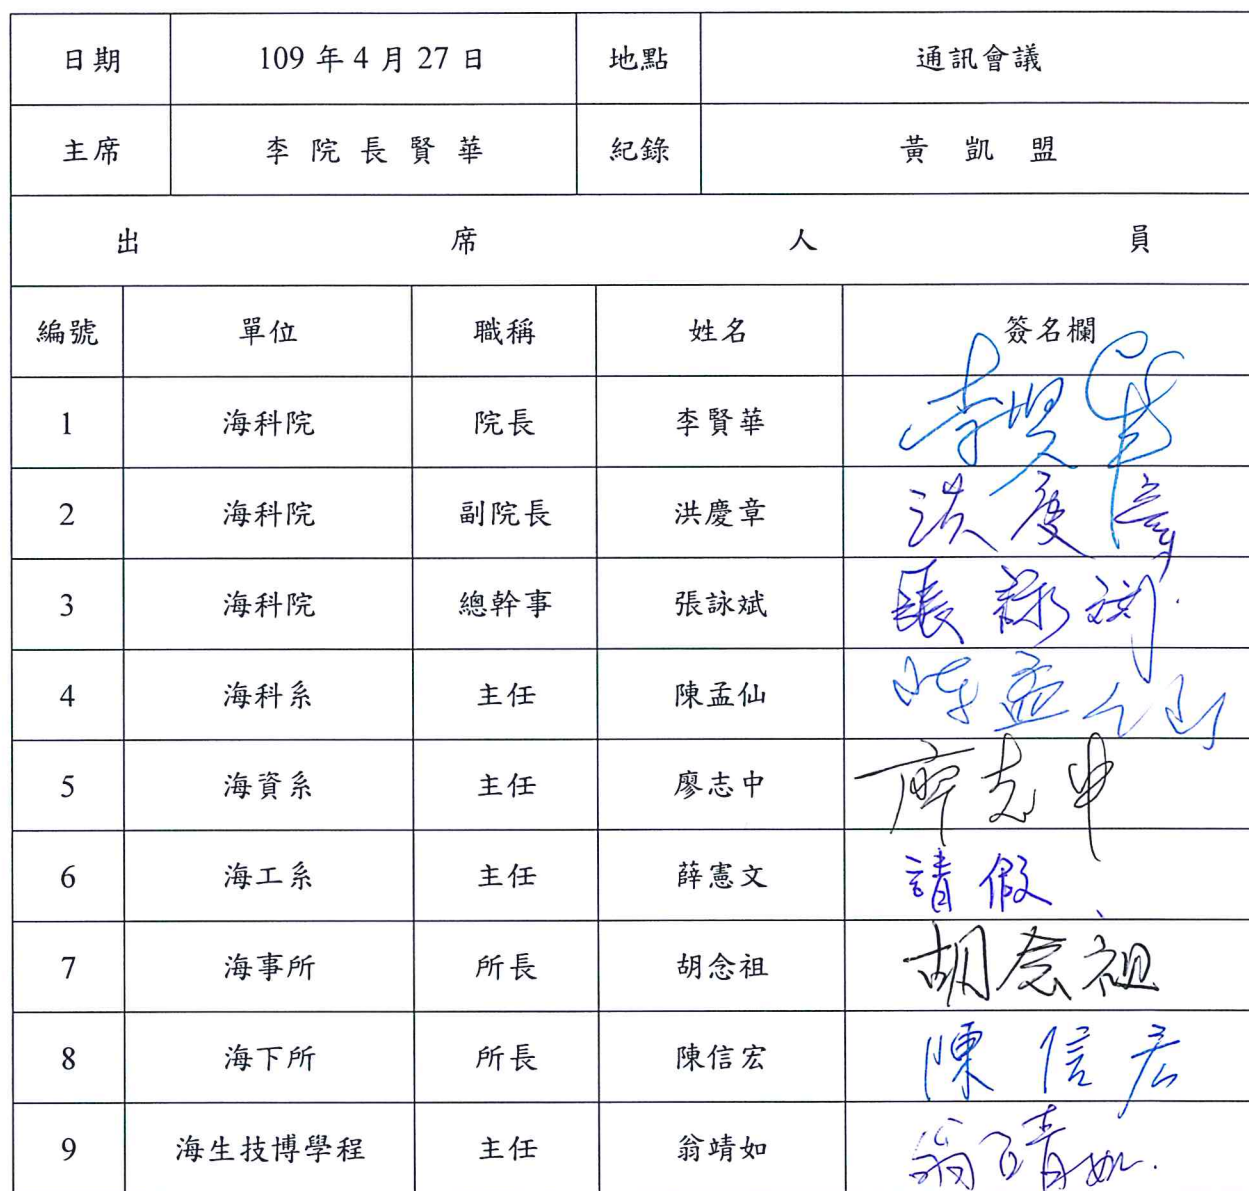 日期 109 年 4 月 27 日 地點 通訊會議
主席 李 院 長 賢 華 紀錄 黃 凱 盟
出 席 人 員
編號 單位 職稱 姓名 簽名欄
1 海科院 院長 李賢華 李賢華
2 海科院 副院長 洪慶章 洪慶章
3 海科院 總幹事 張詠斌 張詠斌
4 海科系 主任 陳孟仙 陳孟仙
5 海資系 主任 廖志中 廖志中
6 海工系 主任 薛憲文 請假
7 海事所 所長 胡念祖 胡念祖
8 海下所 所長 陳信宏 陳信宏
9 海生技博學程 主任 翁靖如 翁靖如